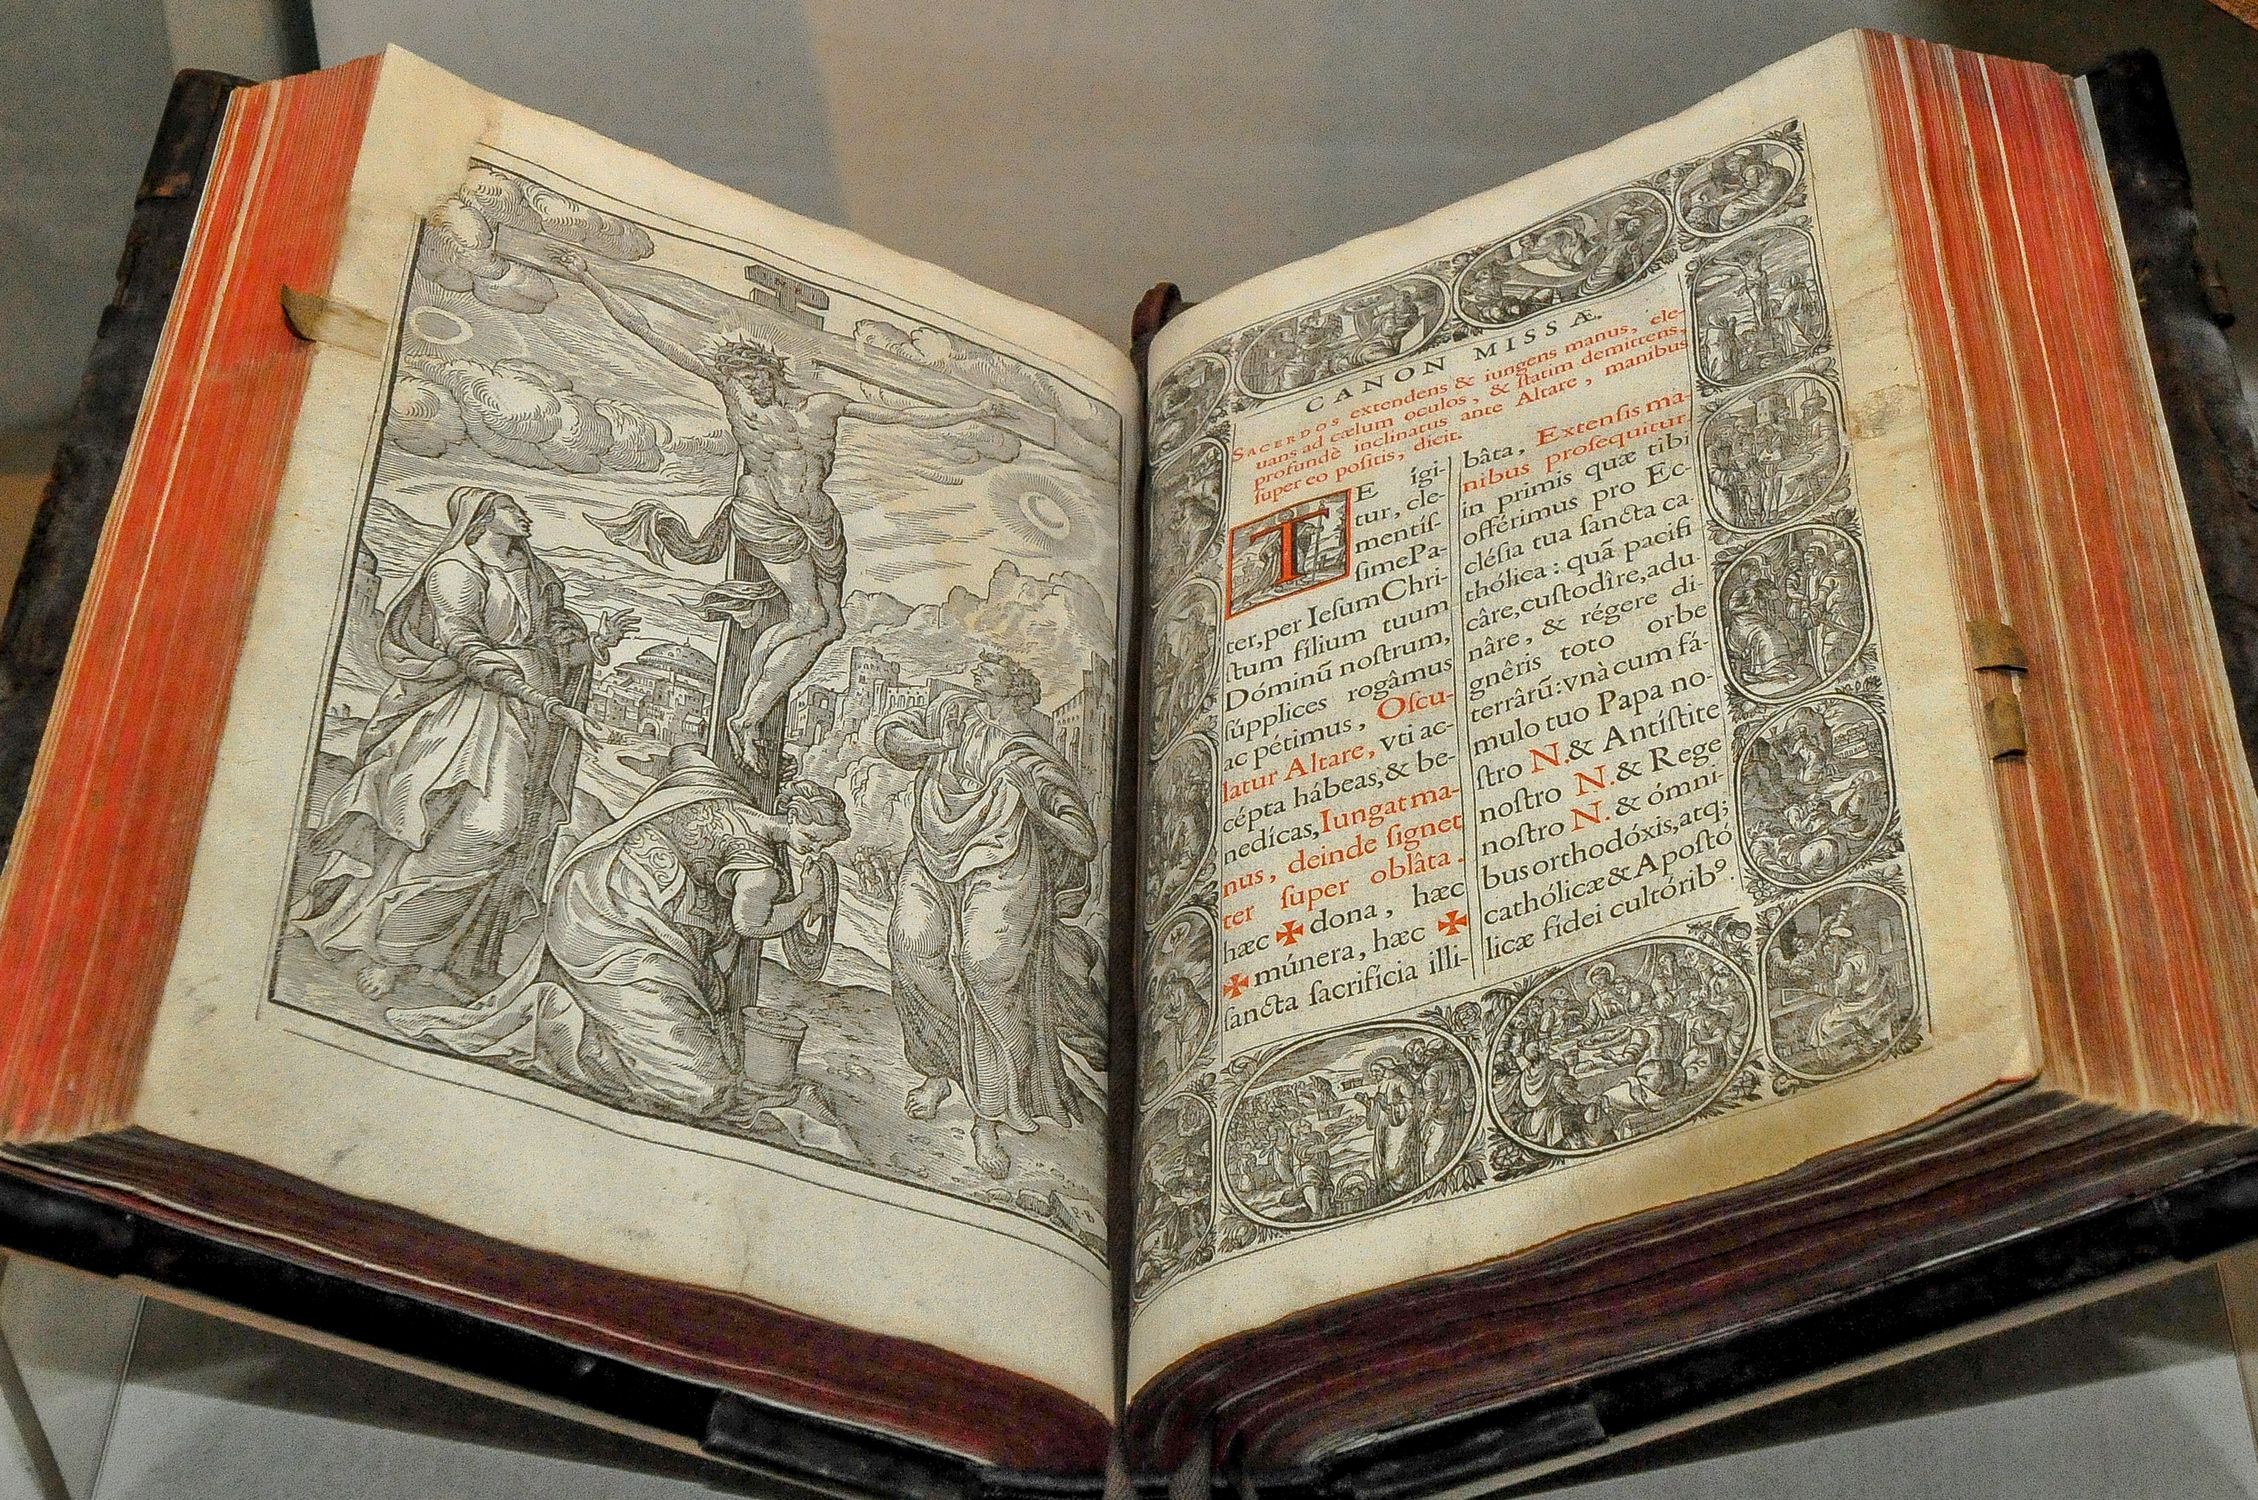 CANON MISSÆ.
SACERDOS extendens & iungens manus, ele-
uans ad cælum oculos, & ſtatim demittens,
profundè inclinatus ante Altare, manibus
ſuper eo poſitis, dicit.
TE ígi-
tur, cle-
mentíſ-
ſime Pa-
ter, per Ieſum Chri-
ſtum fílium tuum
Dóminũ noſtrum,
ſúpplices rogâmus
ac pétimus, Oſcu-
latur Altare, vti ac-
cépta hábeas, & be-
nedícas, Iungat ma-
nus, deinde ſignet
ter ſuper oblâta.
hæc ✠ dona, hæc
✠ múnera, hæc ✠
ſancta ſacrifícia illi-
bâta, Extenſis ma-
nibus proſequitur,
in primis quæ tibi
offérimus pro Ec-
cléſia tua ſancta ca
thólica: quã pacifi
câre, cuſtodîre, adu-
nâre, & régere di-
gnêris toto orbe
terrârũ: vnà cum fá-
mulo tuo Papa no-
ſtro N. & Antíſtite
noſtro N. & Rege
noſtro N. & ómni-
bus orthodóxis, atq;
cathólicæ & Apoſtó
licæ fídei cultóribꝰ.